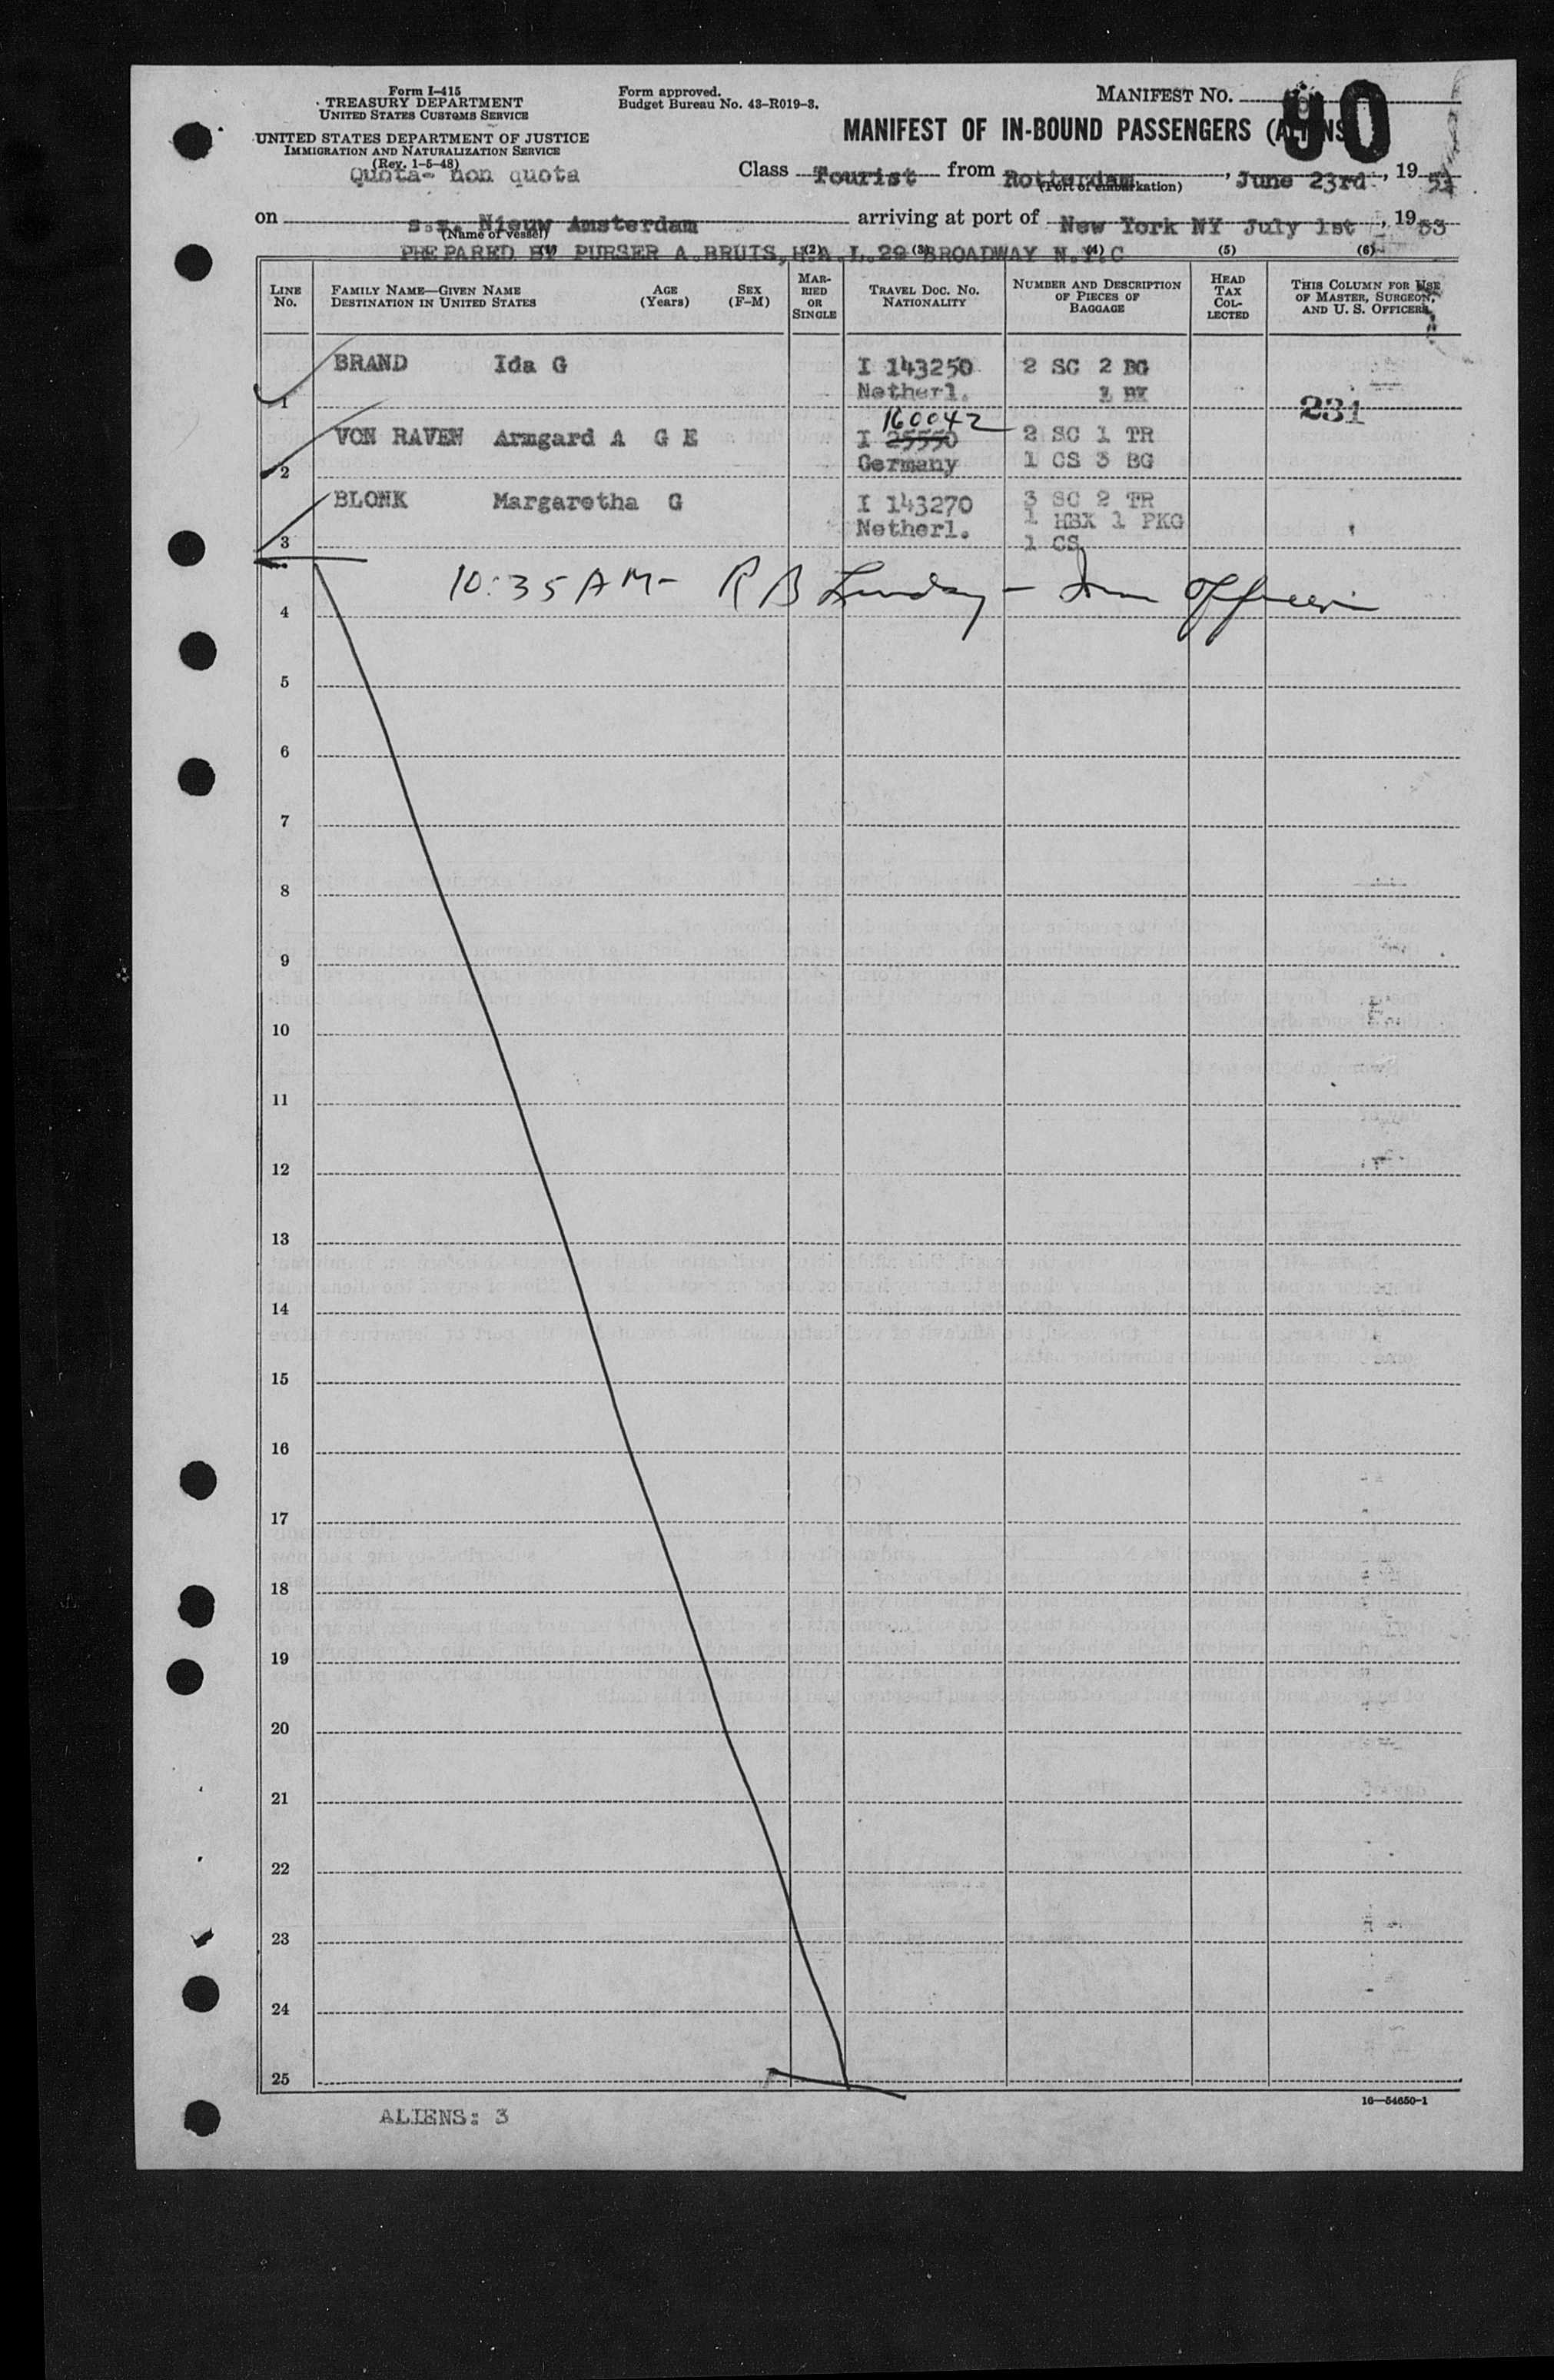 Form I-415
TREASURY DEPARTMENT
UNITED STATES CUSTOMS SERVICE
UNITED STATES DEPARTMENT OF JUSTICE
IMMIGRATION AND NATURALIZATION SERVICE
(Rev. 1-5-48)
Quota- non quota
Form approved.
Budget Bureau No. 43-R019-3.
MANIFEST NO.
90
MANIFEST OF IN-BOUND PASSENGERS (ALIENS
Class Tourist from Rotterdam, June 23rd, 19
(Port of embarkation)
on s.s. Nieuw Amsterdam arriving at port of New York NY July 1st, 1953
(Name of vessel)
PREPARED BY PURSER A.BRUIS, H.A.L.29 BROADWAY N.Y.C
(2) (3) (4) (5) (6)
LINE No.
FAMILY NAME—GIVEN NAME
DESTINATION IN UNITED STATES
AGE (Years)
SEX (F-M)
MARRIED OR SINGLE
TRAVEL DOC. NO.
NATIONALITY
NUMBER AND DESCRIPTION OF PIECES OF BAGGAGE
HEAD TAX COLLECTED
THIS COLUMN FOR USE OF MASTER, SURGEON, AND U. S. OFFICERS
BRAND Ida G I 143250 2 SC 2 BG
Netherl. 1 BX
1 231
160042
VON RAVEN Armgard A G E I 25550 2 SC 1 TR
2 Germany 1 CS 3 BG
BLONK Margaretha G I 143270 3 SC 2 TR
Netherl. 1 HBX 1 PKG
3 1 CS
10:35 AM- R B Lindsay - Imm Officer
4
5
6
7
8
9
10
11
12
13
14
15
16
17
18
19
20
21
22
23
24
25
ALIENS: 3
16—54650-1